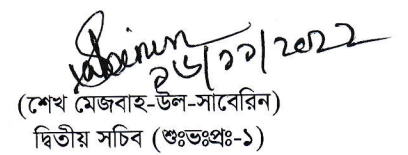 ১৬/১১/২০২২
(শেখ মেজবাহ-উল-সাবেরিন)
দ্বিতীয় সচিব (শুঃভঃপ্রঃ-১)